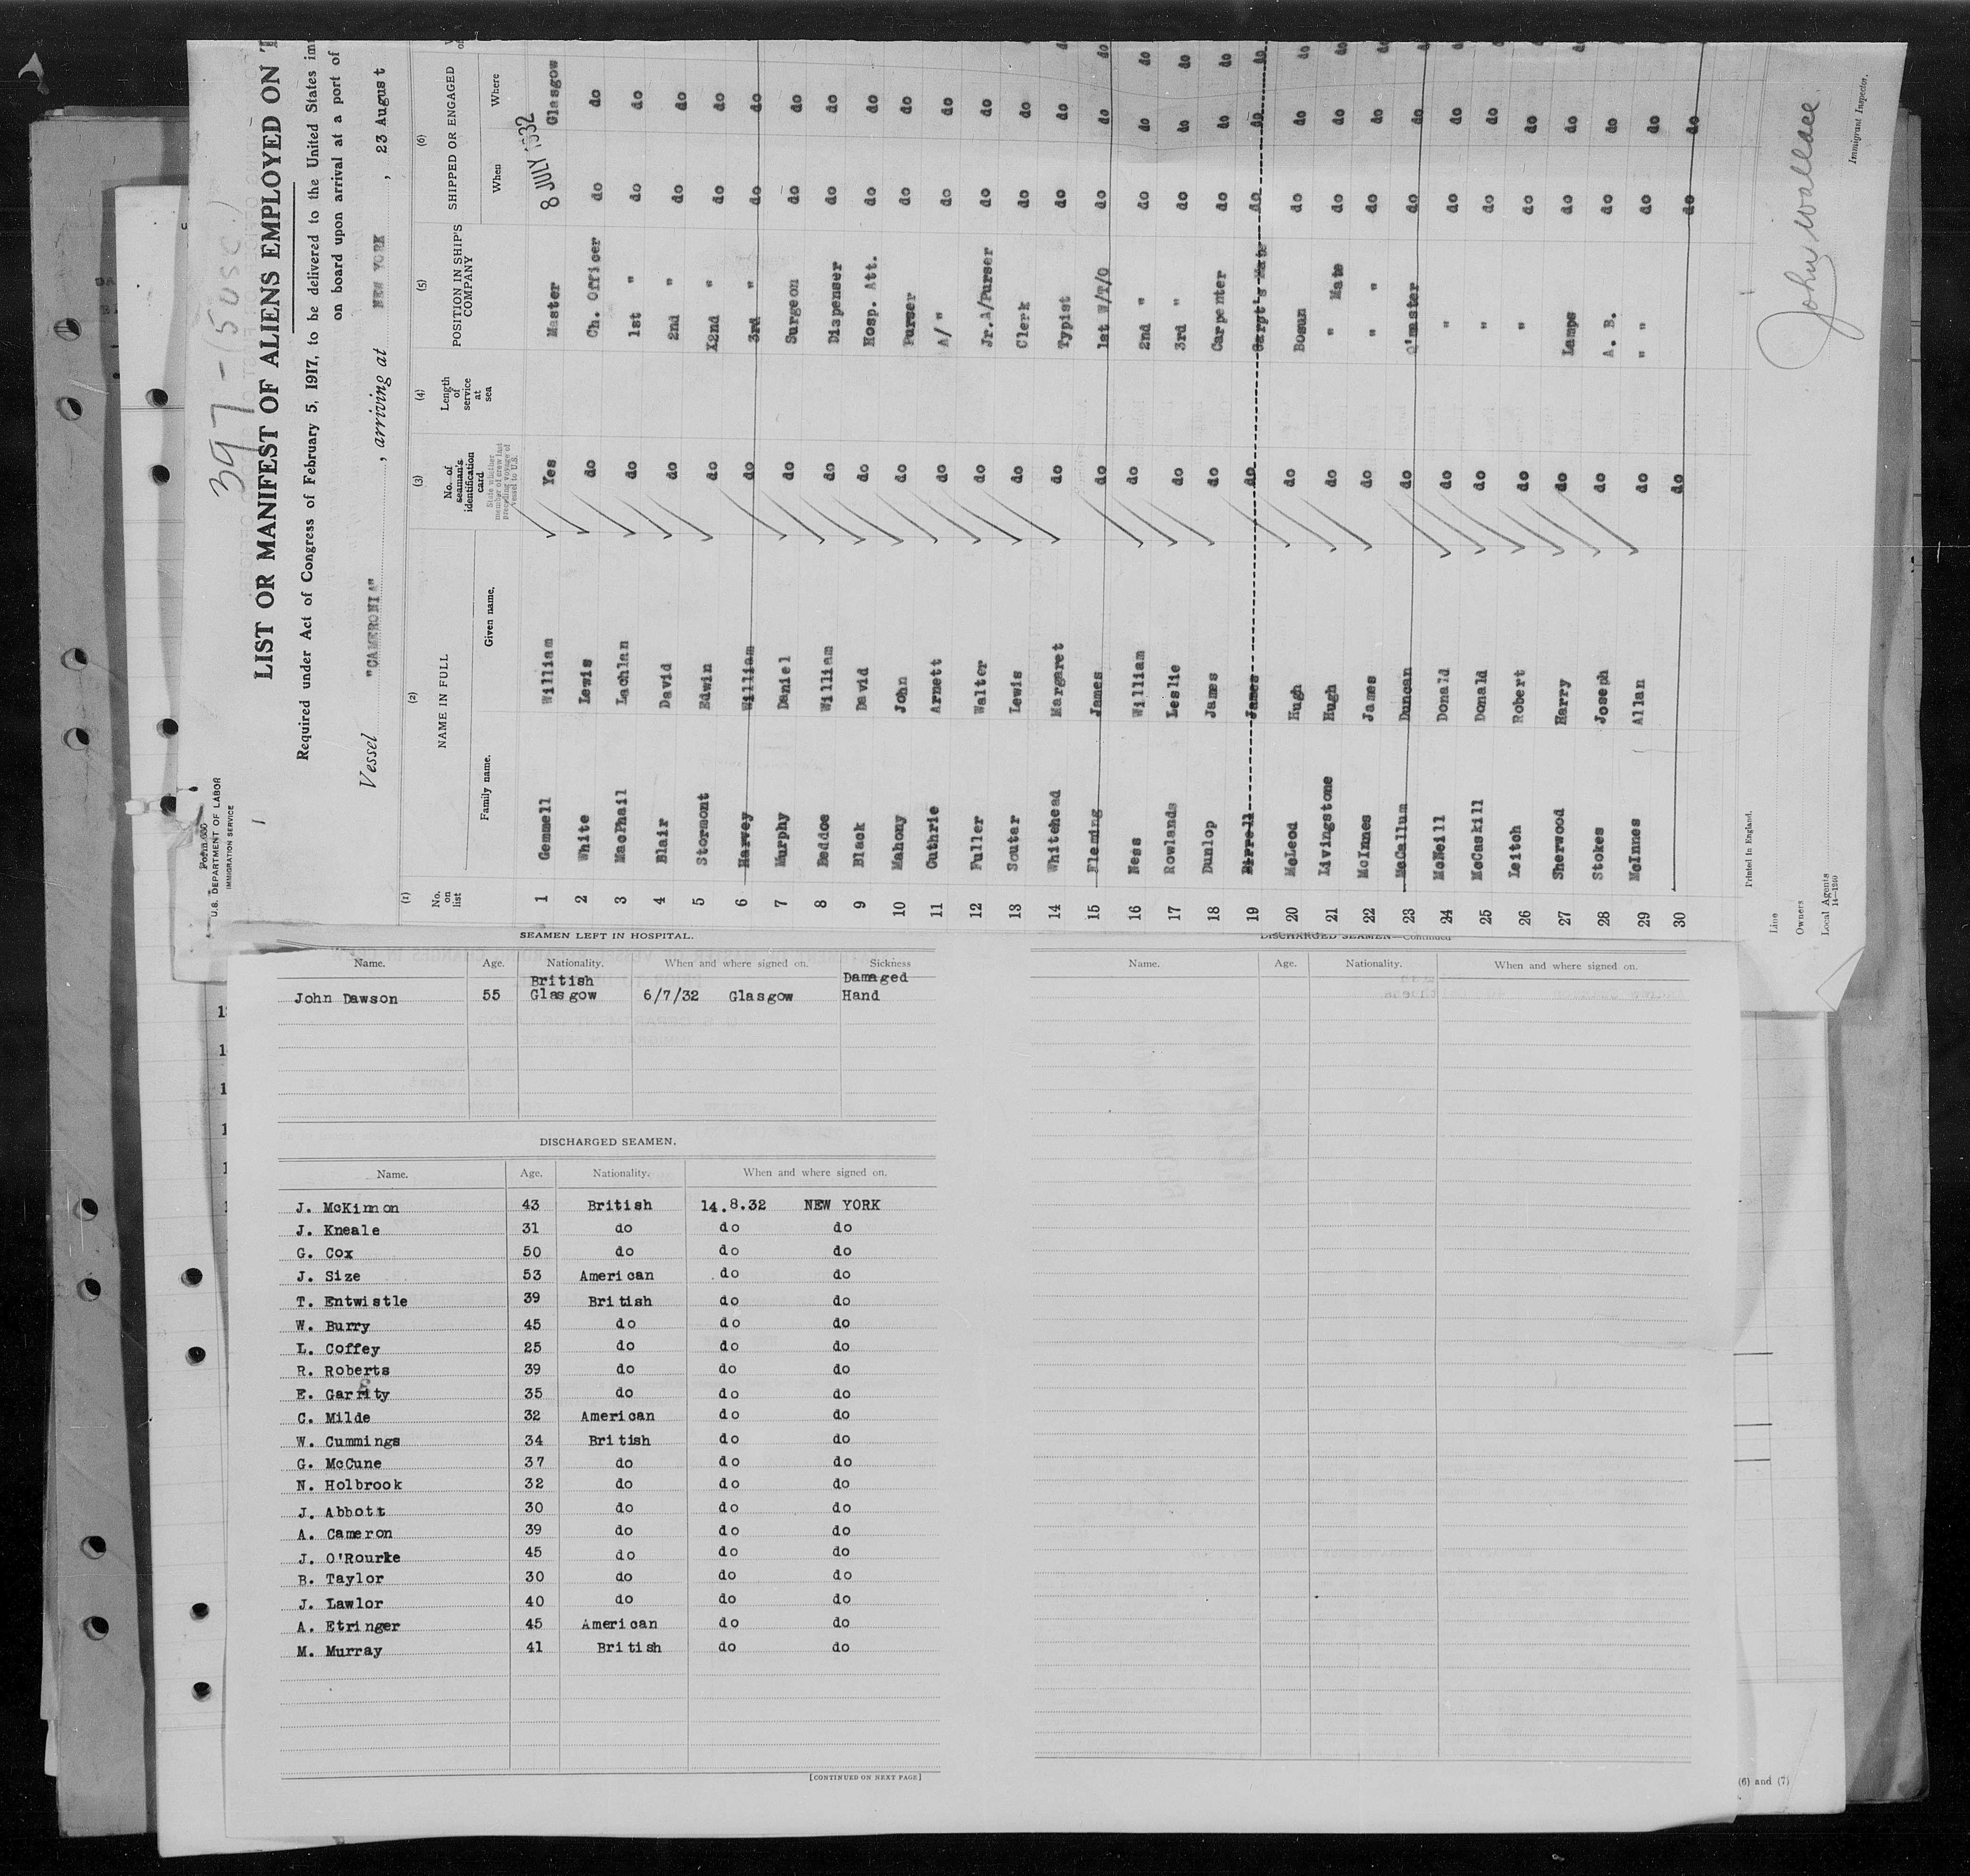 397 - (50sc.)
Form 680
U.S. DEPARTMENT OF LABOR
IMMIGRATION SERVICE
LIST OR MANIFEST OF ALIENS EMPLOYED ON T
Required under Act of Congress of February 5, 1917, to be delivered to the United States imm
on board upon arrival at a port of
Vessel "CAMERONIA" , arriving at NEW YORK , 23 August
(1) (2) (3) (4) (5) (6)
No. on list NAME IN FULL No. of seaman's identification card Length of service at sea POSITION IN SHIP'S COMPANY SHIPPED OR ENGAGED
Family name. Given name. State whether member of crew last preceding voyage of vessel to U.S. When Where
1 Gemmell William Yes Master 8 JULY 1932 Glasgow
2 White Lewis do Ch. Officer do do
3 MacPhail Lachlan do 1st " do do
4 Blair David do 2nd " do do
5 Stormont Edwin do X2nd " do do
6 Harvey William do 3rd " do do
7 Murphy Daniel do Surgeon do do
8 Beddoe William do Dispenser do do
9 Black David do Hosp. Att. do do
10 Mahony John do Purser do do
11 Guthrie Arnett do A/ " do do
12 Fuller Walter do Jr.A/Purser do do
13 Soutar Lewis do Clerk do do
14 Whitehead Margaret do Typist do do do
15 Fleming James do 1st W/T/O do do do
16 Ness William do 2nd " do do do
17 Rowlands Leslie do 3rd " do do do
18 Dunlop James do Carpenter do do do
19 Birrell James do Carpt's Mate do do do
20 McLeod Hugh do Bosun do do do
21 Livingstone Hugh do " Mate do do do
22 McInnes James do " " do do do
23 McCallum Duncan do Q'master do do do
24 McNeill Donald do " do do do
25 McCaskill Donald do " do do do
26 Leitch Robert do " do do do
27 Sherwood Harry do Lamps do do do
28 Stokes Joseph do A. B. do do
29 McInnes Allan do " " do do
30 do do do
Printed in England.
Line
Owners
Local Agents
14-1240
John Wallace.
Immigrant Inspector.
SEAMEN LEFT IN HOSPITAL.
Name. Age. Nationality. When and where signed on. Sickness
British Damaged
John Dawson 55 Glasgow 6/7/32 Glasgow Hand
DISCHARGED SEAMEN.
Name. Age. Nationality. When and where signed on.
J. McKinnon 43 British 14.8.32 NEW YORK
J. Kneale 31 do do do
G. Cox 50 do do do
J. Size 53 American do do
T. Entwistle 39 British do do
W. Burry 45 do do do
L. Coffey 25 do do do
R. Roberts 39 do do do
E. Garrity 35 do do do
C. Milde 32 American do do
W. Cummings 34 British do do
G. McCune 37 do do do
N. Holbrook 32 do do do
J. Abbott 30 do do do
A. Cameron 39 do do do
J. O'Rourke 45 do do do
B. Taylor 30 do do do
J. Lawlor 40 do do do
A. Etringer 45 American do do
M. Murray 41 British do do
[CONTINUED ON NEXT PAGE]
DISCHARGED SEAMEN—Continued
Name. Age. Nationality. When and where signed on.
(6) and (7)